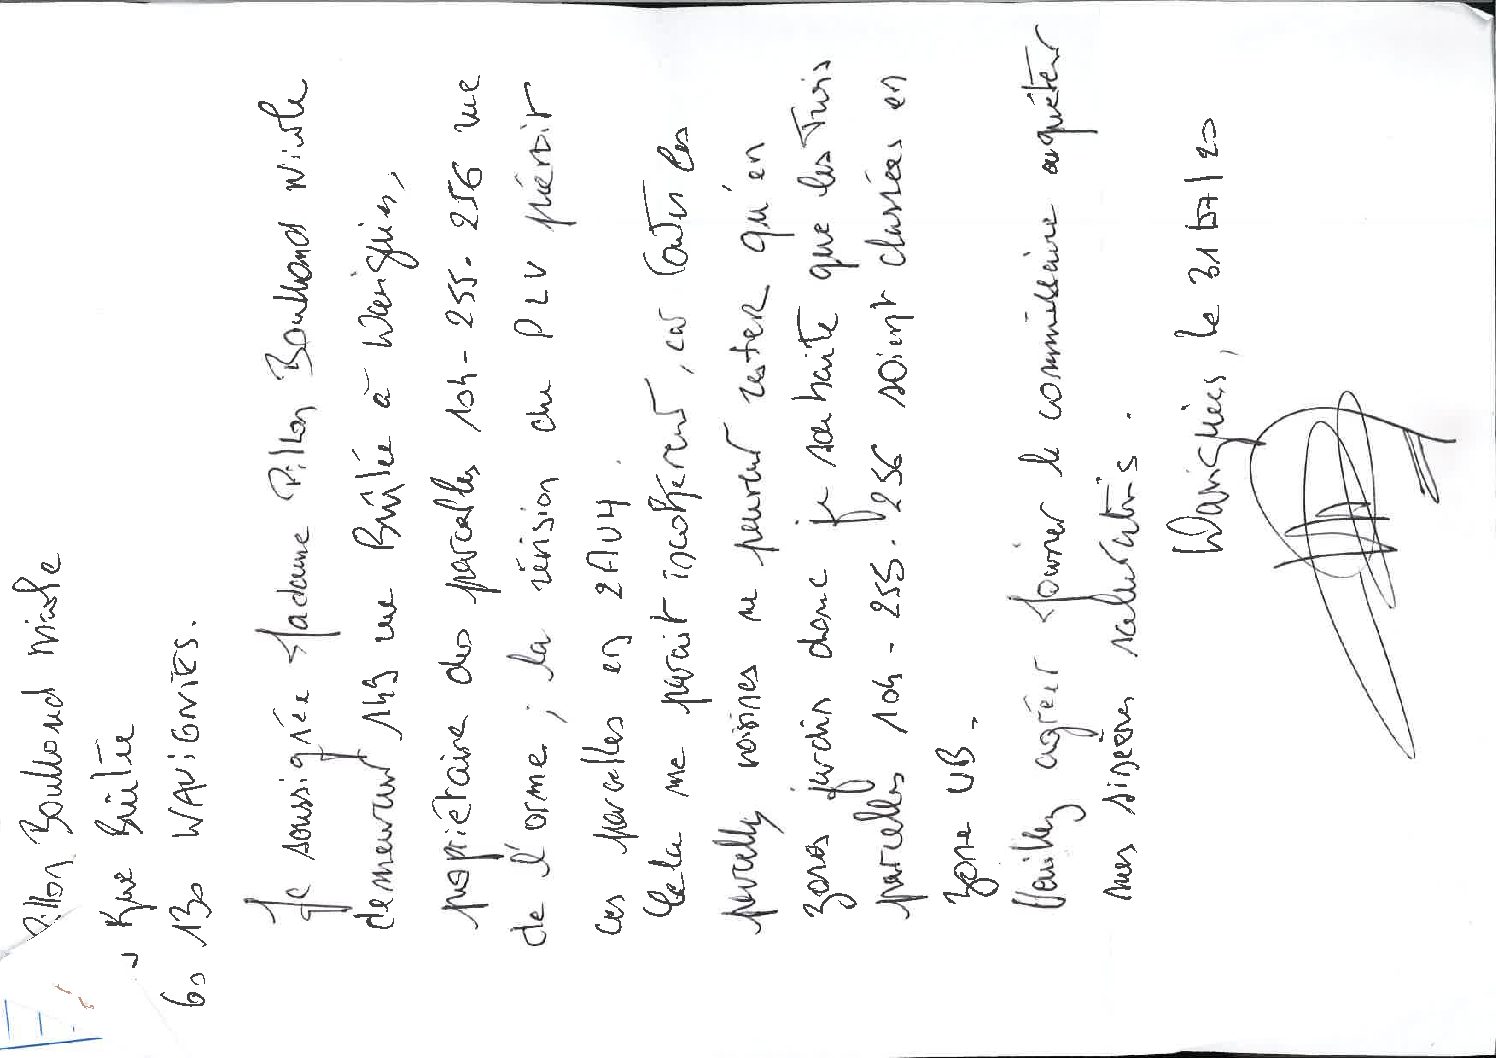 Pillon Boulland Nicole
Rue Brûlée
60 130 WAVIGNIES.
Je soussignée Madame Pillon Boulland Nicole
demeurant 149 rue Brûlée à Wavignies,
propriétaire des parcelles 104 - 255 - 256 rue
de l'orme ; la révision du PLU prévoit
ces parcelles en 2AUH.
Cela me parait incohérent, car toutes les
parcelles voisines ne peuvent rester qu'en
zones jardin donc je souhaite que les trois
parcelles 104 - 255 - 256 soient classées en
zone UB.
Veuillez agréer Monsieur le commissaire enquêteur
mes sincères salutations.
Wavignies, le 31/07/20